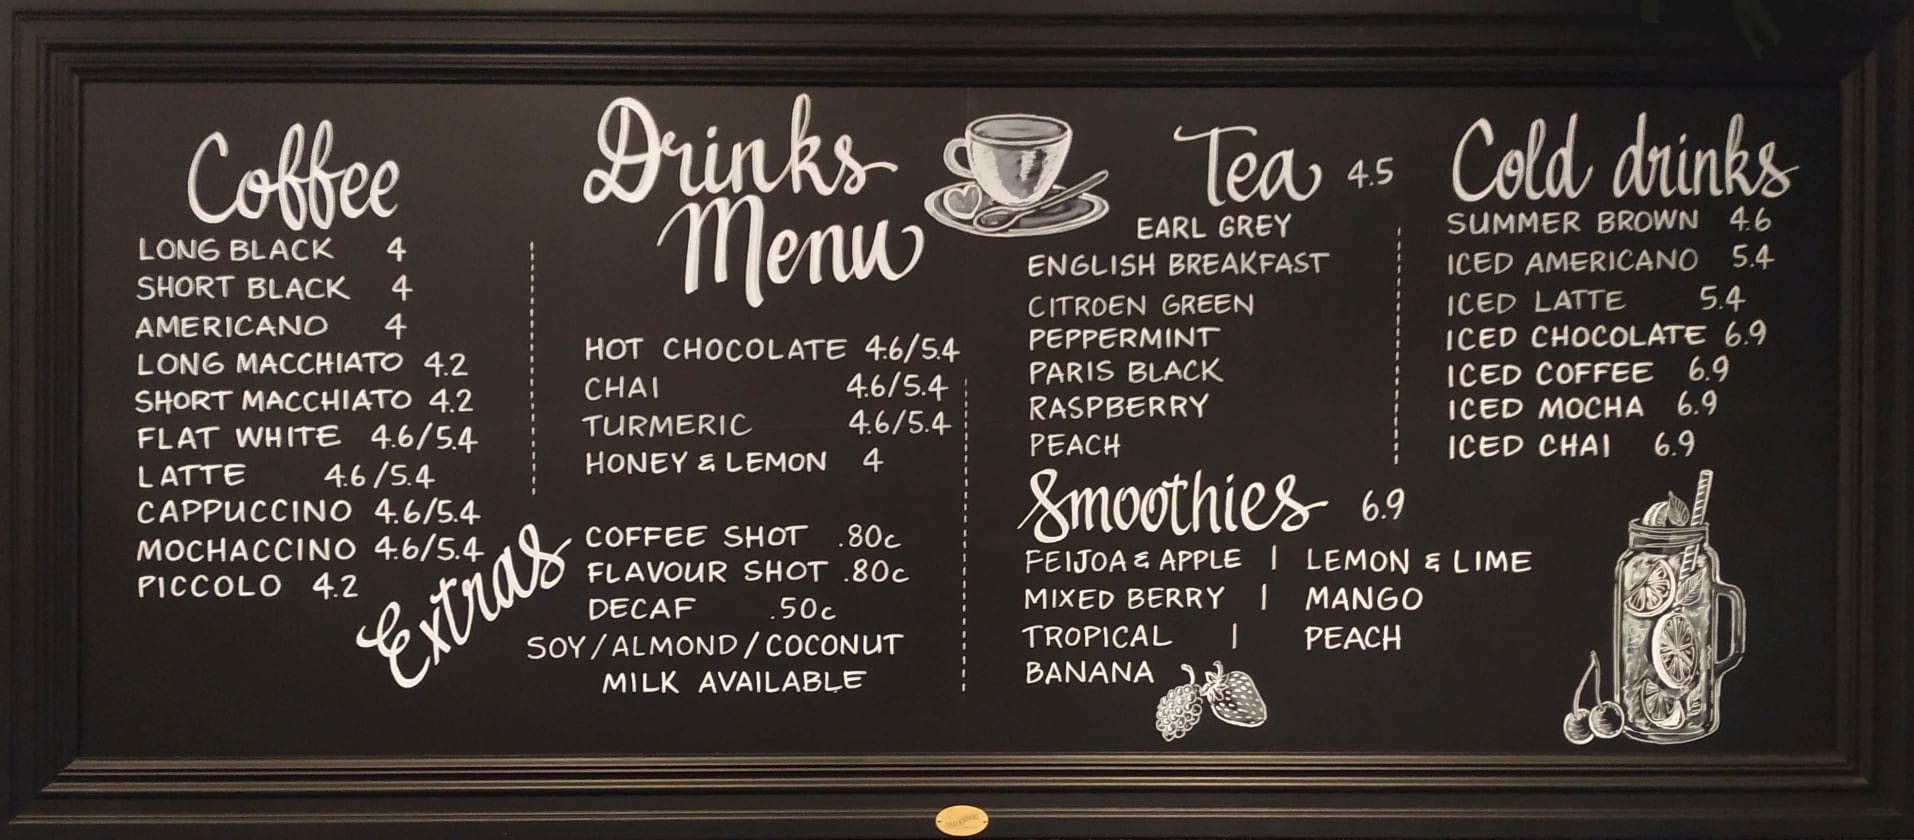 Coffee
LONG BLACK 4
SHORT BLACK 4
AMERICANO 4
LONG MACCHIATO 4.2
SHORT MACCHIATO 4.2
FLAT WHITE 4.6/5.4
LATTE 4.6/5.4
CAPPUCCINO 4.6/5.4
MOCHACCINO 4.6/5.4
PICCOLO 4.2
Drinks
Menu
HOT CHOCOLATE 4.6/5.4
CHAI 4.6/5.4
TURMERIC 4.6/5.4
HONEY & LEMON 4
Extras
COFFEE SHOT .80c
FLAVOUR SHOT .80c
DECAF .50c
SOY/ALMOND/COCONUT
MILK AVAILABLE
Tea 4.5
EARL GREY
ENGLISH BREAKFAST
CITROEN GREEN
PEPPERMINT
PARIS BLACK
RASPBERRY
PEACH
Smoothies 6.9
FEIJOA & APPLE | LEMON & LIME
MIXED BERRY | MANGO
TROPICAL | PEACH
BANANA
Cold drinks
SUMMER BROWN 4.6
ICED AMERICANO 5.4
ICED LATTE 5.4
ICED CHOCOLATE 6.9
ICED COFFEE 6.9
ICED MOCHA 6.9
ICED CHAI 6.9